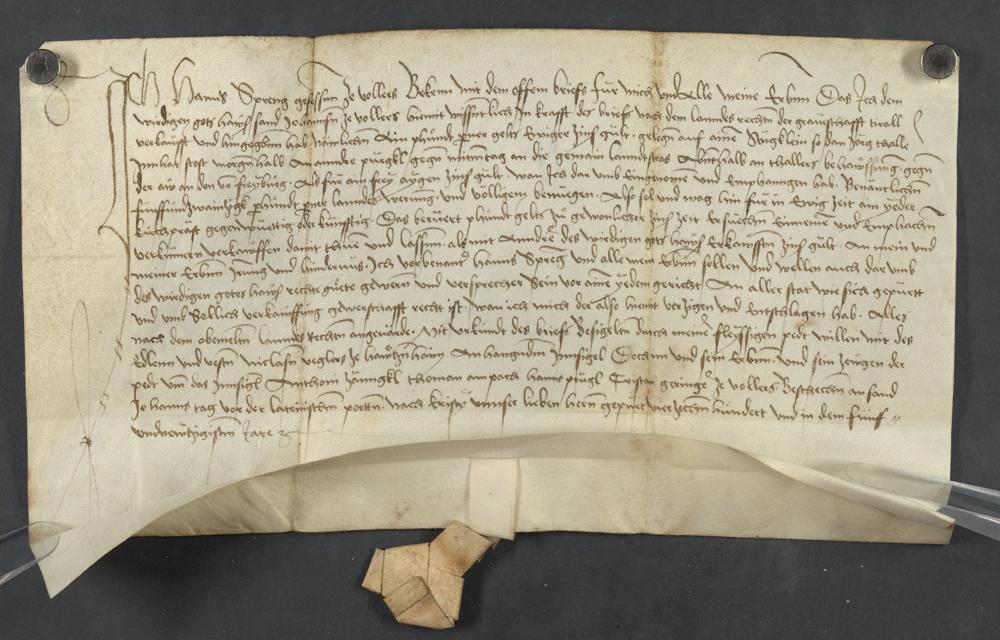 Ich Hanns Spreng gesessen ze vollers Bekenn mit dem offem briefe für mich und Alle meine Erbnn Das Ich dem
wirdigen gots hawss sand Johannsn ze vollers hiemit wissentlich In krafft des briefs nach dem lanndes rechtn der graueschafft tiroll
verkaufft und hingegebm hab namlichn Ain phundt perner gelts Ewiger zinss gült gelegn auf ainem so dan Jörg taalle
Innhat stost morgn halb An anndre gegn mitemtag an die gemain lanndstras Abnthalb an thallers behawssung gegn
der aw an den von freyburg Als für ain frey aygen zinss gült wan Ich dar umb Eingenomen und Emphanngen hab Benantlichn
fünffundzwainzigk phundt perner lanndes werung und völligem benuegen Also sol und mag hin für in Ewig zeit ain yeder
kirchprast gegenwurttig oder künfftig Das berüert phundt gelts zu gewonlicher zinss zeit Ersuechn Einnemen und Emphachn
verkumern verkawffen damit thuen und lassen als mit Anndrn des wirdigen gots hawss Erkaufften zinss gült An mein und
meiner Erbnn Irrung und hindernus Ich vorbenantr hanns Spreng und alle mein Erbnn sollen und wellen auch dar umb
des wirdigen gotes hawss rechte guete gewern und versprecher sein vor ainem yeden gericht An aller stat wie sich gepürt
und umb sollich verkauffung gewerschafft recht ist wan ich mich der also hiemit verzigen und Entschlagen hab Alles
nach dem obemeltn lanndes rechtn angeuärde Mit urkundt des briefs Besigeltn durch meiner fleyssigen pet willen mit des
Edlenn und vestn Niclasn veglers ze hawtznhaim An hangundm Innsigel Doch im und sein Erbnn und sein zeugen der
pedt um das Innsigl Anthoni Jänngkl thoman am pach hanns prugl Cristan ze vollers Beschechn an sand
Johanns tag vor der lateinischen portn nach kristi unnser lieben hern gepurt vierzechen hundert und in dem fünf
undvierzigistnn Jare